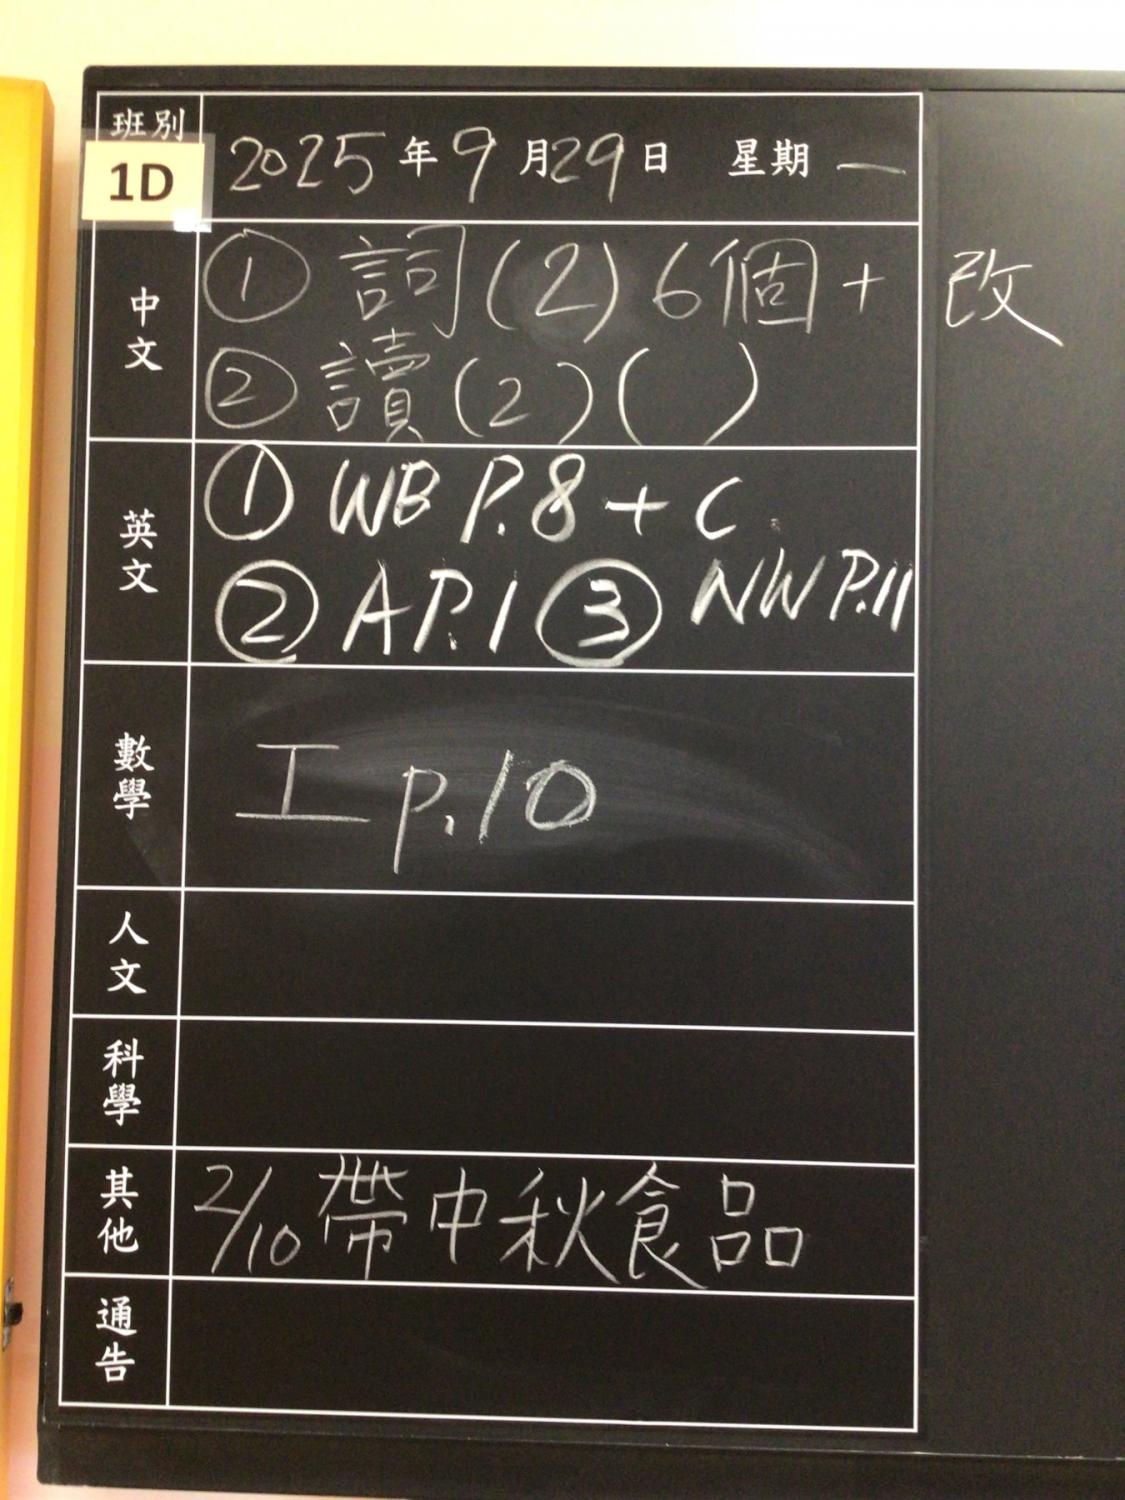 班別
1D
2025年9月29日 星期一
中文
① 詞(2) 6個 + 改
② 讀(2)( )
英文
① WB P.8 + C.
② A P.1 ③ NW P.11
數學
工 p.10
人文
科學
其他
2/10 帶中秋食品
通告